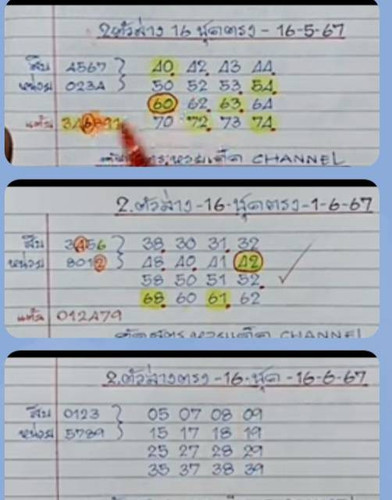 2ตัวล่าง 16 ชุดตรง - 16-5-67
สิบ 4567 } 40 42 43 44
หน่วย 0234 50 52 53 54
60 62 63 64
แต้ม 346891 70 72 73 74
CHANNEL
2.ตัวล่าง-16-ชุดตรง-1-6-67
สิบ 3456 } 38 30 31 32
หน่วย 8012 48 40 41 42
58 50 51 52
68 60 61 62
แต้ม 012479
CHANNEL
2.ตัวล่างตรง-16-ชุด-16-6-67
สิบ 0123 } 05 07 08 09
หน่วย 5789 15 17 18 19
25 27 28 29
35 37 38 39